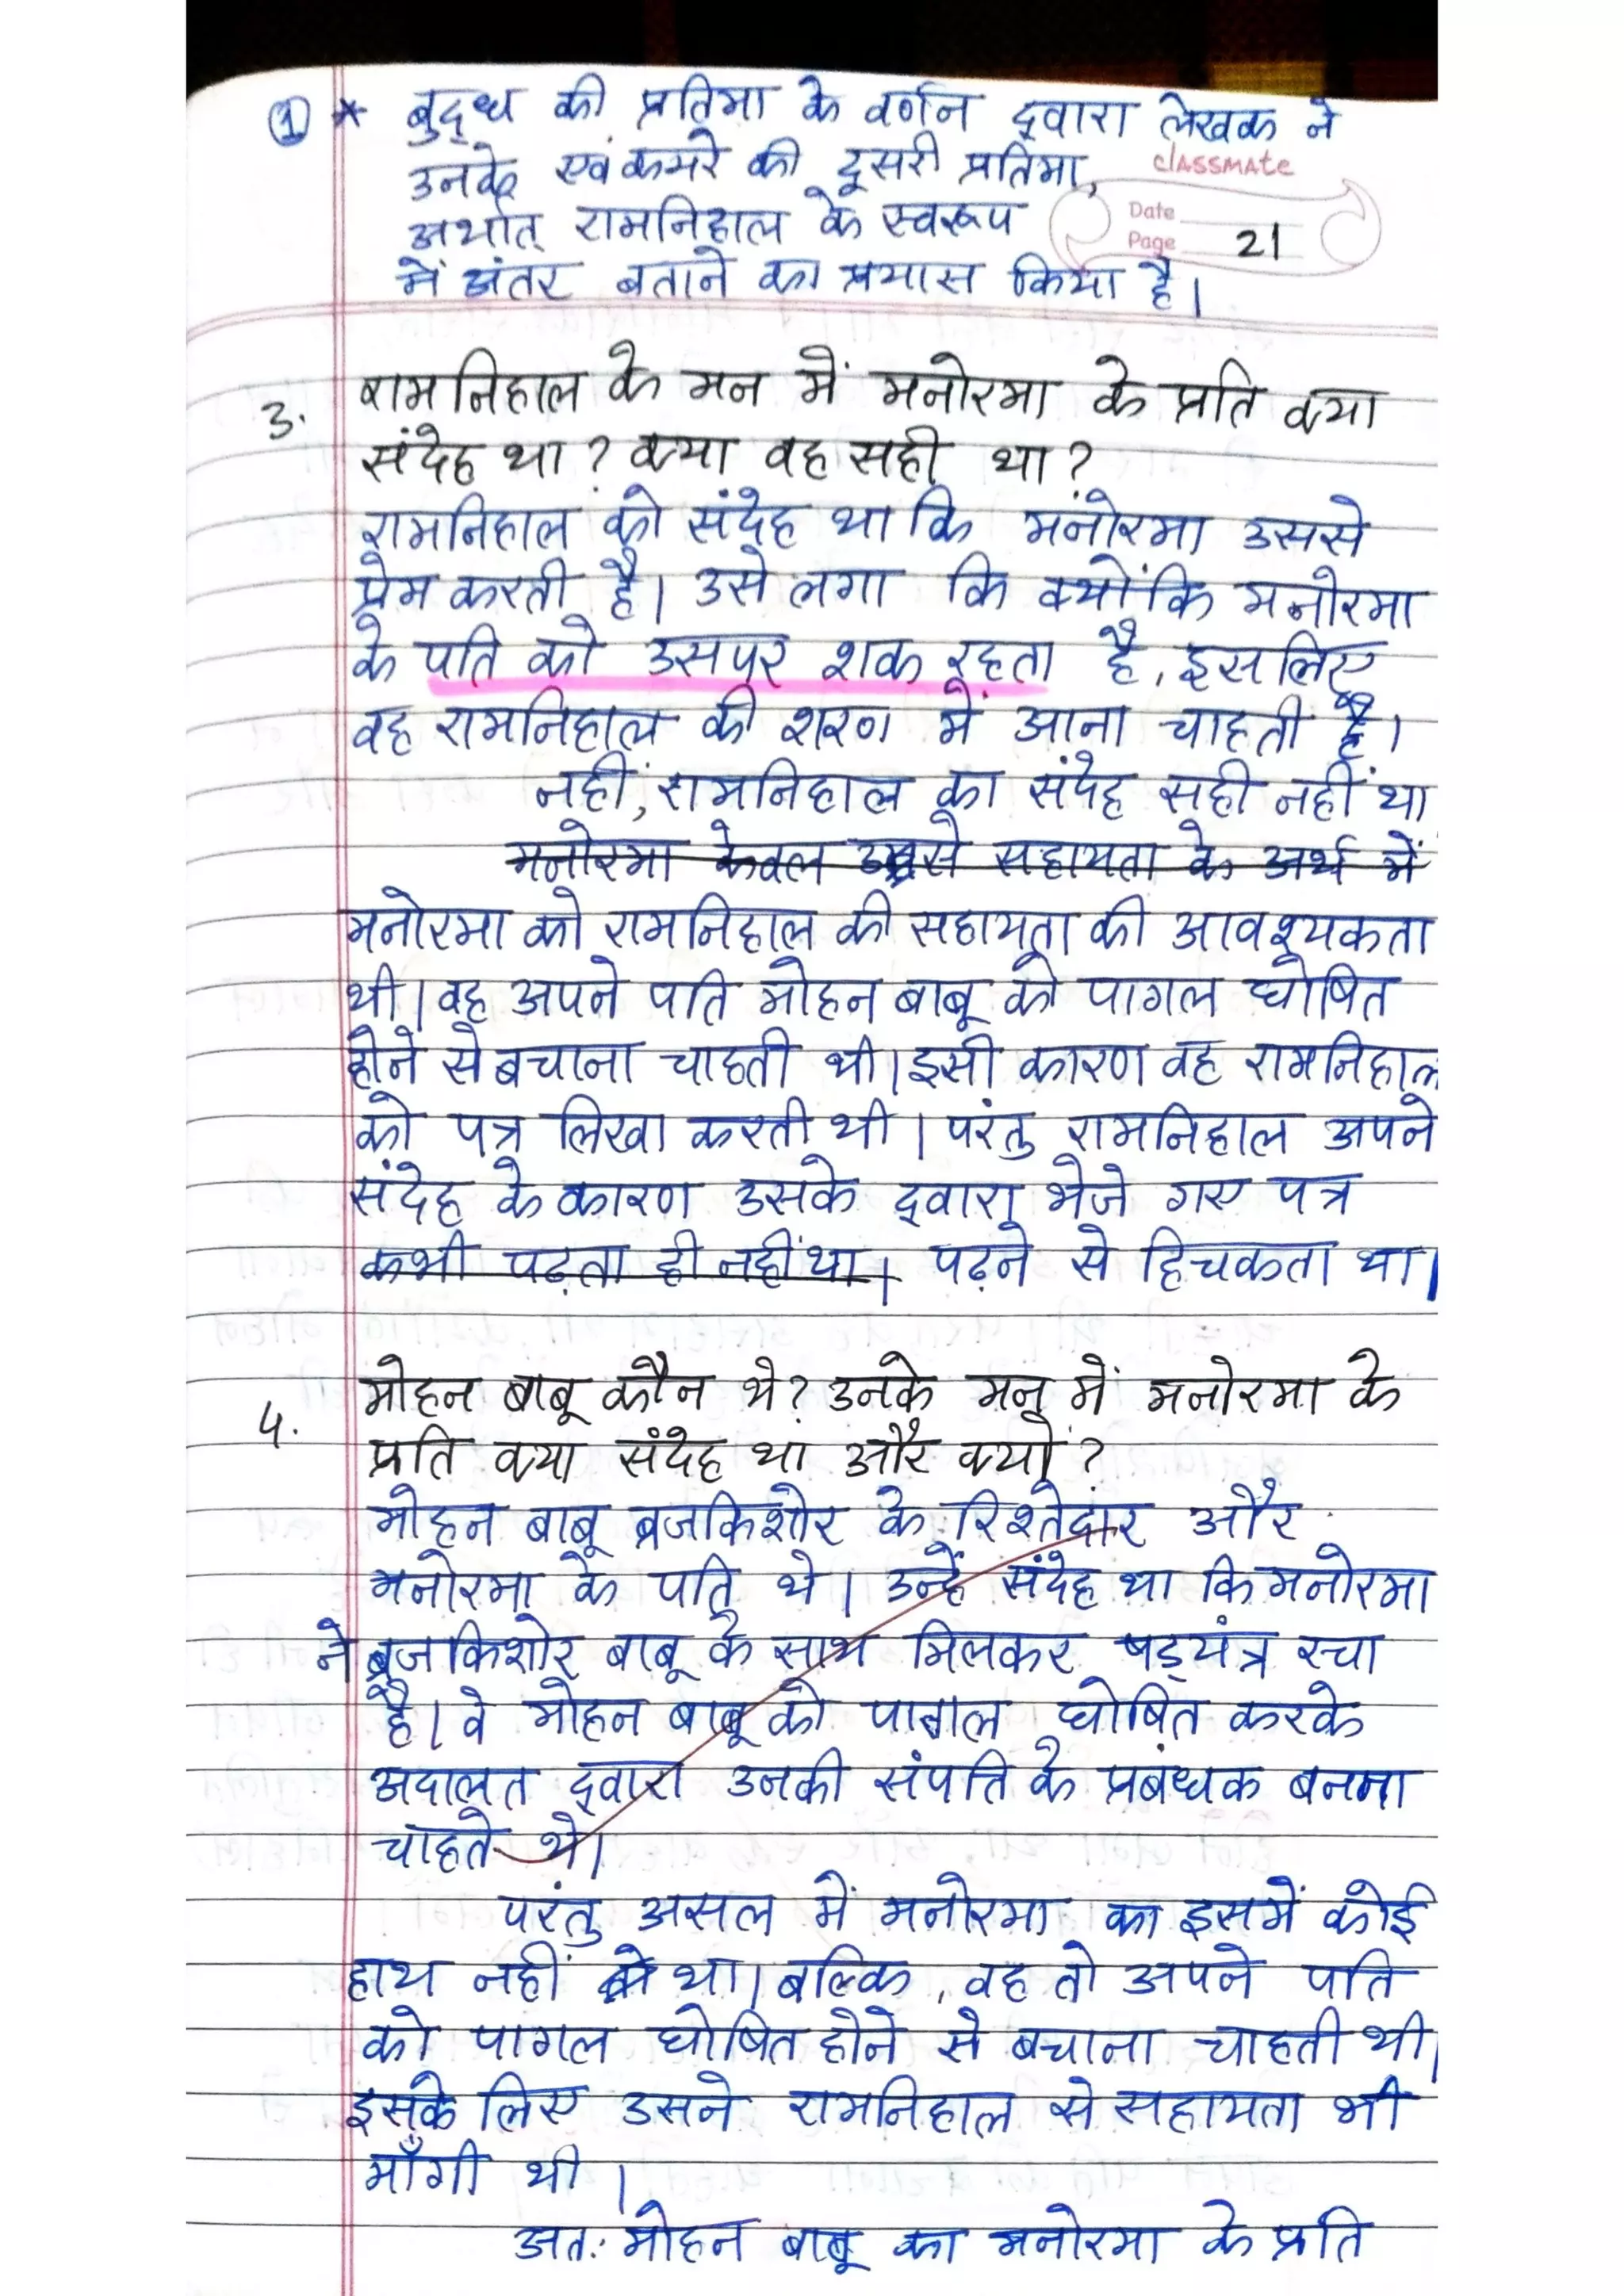 ① * बुद्ध की प्रतिमा के वर्णन द्वारा लेखक ने
उनके एवं कमरे की दूसरी प्रतिमा,
classmate
अर्थात् रामनिहाल के स्वरूप
Date
Page 21
में अंतर बताने का प्रयास किया है।
3. रामनिहाल के मन में मनोरमा के प्रति क्या
संदेह था? क्या वह सही था?
रामनिहाल को संदेह था कि मनोरमा उससे
प्रेम करती है। उसे लगा कि क्योंकि मनोरमा
के पति को उसपर शक रहता है, इसलिए
वह रामनिहाल की शरण में आना चाहती है।
नहीं, रामनिहाल का संदेह सही नहीं था
मनोरमा केवल उससे सहायता के अर्थ में
मनोरमा को रामनिहाल की सहायता की आवश्यकता
थी। वह अपने पति मोहन बाबू को पागल घोषित
होने से बचाना चाहती थी। इसी कारण वह रामनिहाल
को पत्र लिखा करती थी। परंतु रामनिहाल अपने
संदेह के कारण उसके द्वारा भेजे गए पत्र
कभी पढ़ता ही नहीं था। पढ़ने से हिचकता था।
4. मोहन बाबू कौन थे? उनके मन में मनोरमा के
प्रति क्या संदेह था और क्यों?
मोहन बाबू ब्रजकिशोर के रिश्तेदार और
मनोरमा के पति थे। उन्हें संदेह था कि मनोरमा
ने बृजकिशोर बाबू के साथ मिलकर षड्यंत्र रचा
है। वे मोहन बाबू को पागल घोषित करके
अदालत द्वारा उनकी संपत्ति के प्रबंधक बनना
चाहते थे।
परंतु असल में मनोरमा का इसमें कोई
हाथ नहीं था। बल्कि, वह तो अपने पति
को पागल घोषित होने से बचाना चाहती थी।
इसके लिए उसने रामनिहाल से सहायता भी
माँगी थी।
अतः मोहन बाबू का मनोरमा के प्रति